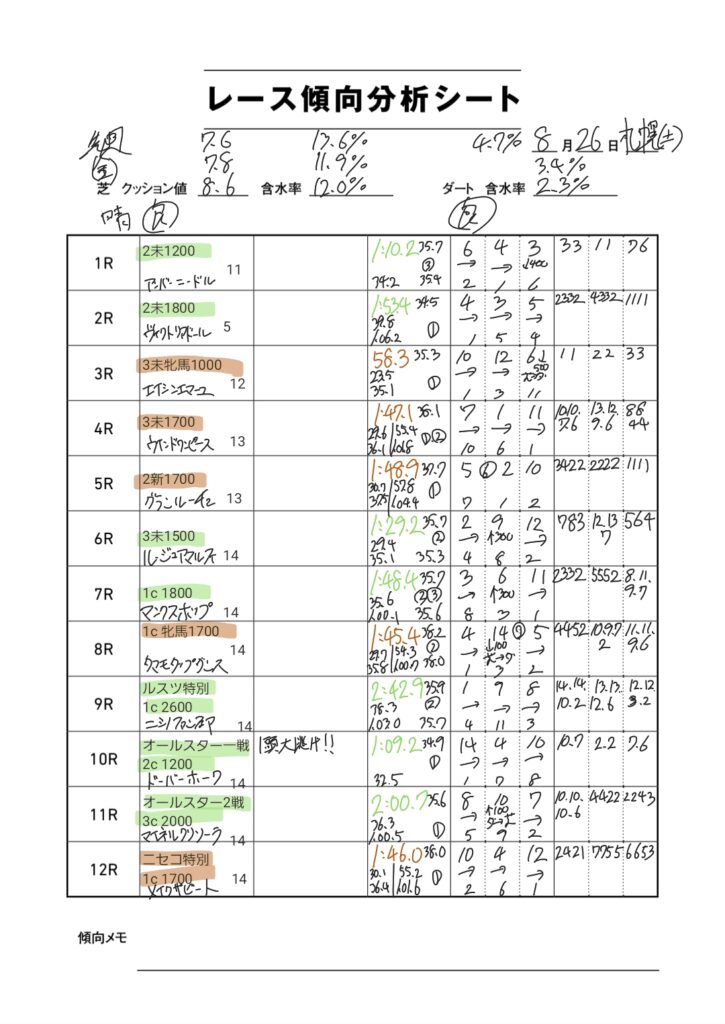 レース傾向分析シート
7.6 13.6% 4.7% 8月26日 札幌(土)
金 7.8 11.9% 3.4%
芝 クッション値 8.6 含水率 12.0% ダート 含水率 2.3%
晴 良 良
1R 2未1200 11 1:10.2 35.7 6 4 3 33 11 76
③ → → ↓400
アンバーニードル 34.2 35.4 2 1 6
2R 2未1800 1:53.4 39.5 4 3 5 2332 4332 1111
ヴィクトリアドール 5 39.8 1.06.2 ① → → → 1 5 4
3R 3未牝馬1000 58.3 35.3 10 12 6 11 22 33
エイシンエマーユ 12 23.5 35.1 ① → → 1 3 11
4R 3未1700 1:47.1 38.1 7 1 11 10.10.7.6 13.12.9.6 8844
ウインドワンピース 13 29.6 55.4 36.1 1.01.8 ①② → → → 10 6 1
5R 2新1700 1:48.9 37.7 5 ⑥ 2 10 3422 2222 1111
13 30.7 57.8 37.5 1.04.4 ① 7 1 2
6R 3未1500 1:29.2 35.7 2 9 12 783 12.13.7 564
ルージュアマルフィ 14 29.4 35.1 ② 35.3 → ↑300 → 4 8 2
7R 1c 1800 1:48.4 35.7 3 6 11 2332 5552 8.11.9.7
マンクスホップ 14 35.6 1.00.1 ②③ 35.6 → ↑300 → 8 3 1
8R 1c 牝馬1700 1:45.4 38.2 4 14 5 4452 10.9.7.2 11.11.9.6
タマモタップダンス 14 29.7 54.3 35.8 1.00.7 ② 38.0 → ↓100 芝→ダ → 1 3 2
9R ルスツ特別 2:42.9 35.9 1 9 8 14.14.10.2 13.13.12.6 12.12.3.2
1c 2600 38.3 ② → → →
14 1.03.0 35.7 4 11 3
10R オールスター一戦 1頭大逃げ!! 1:09.2 34.9 14 4 10 10.7 2.2 7.6
2c 1200 ① → → →
ドーバーホーク 14 32.5 1 7 8
11R オールスター2戦 2:00.7 35.6 8 10 7 10.10.10.6 4422 2243
3c 2000 36.3 → ↑100 ダ→芝 →
マイネルクリソーラ 14 1.00.5 ① 5 9 2
12R ニセコ特別 1:46.0 38.0 10 4 12 2421 7755 6653
1c 1700 14 30.1 55.2 ① → → →
メイクザビート 36.4 1.01.6 2 6 1
傾向メモ